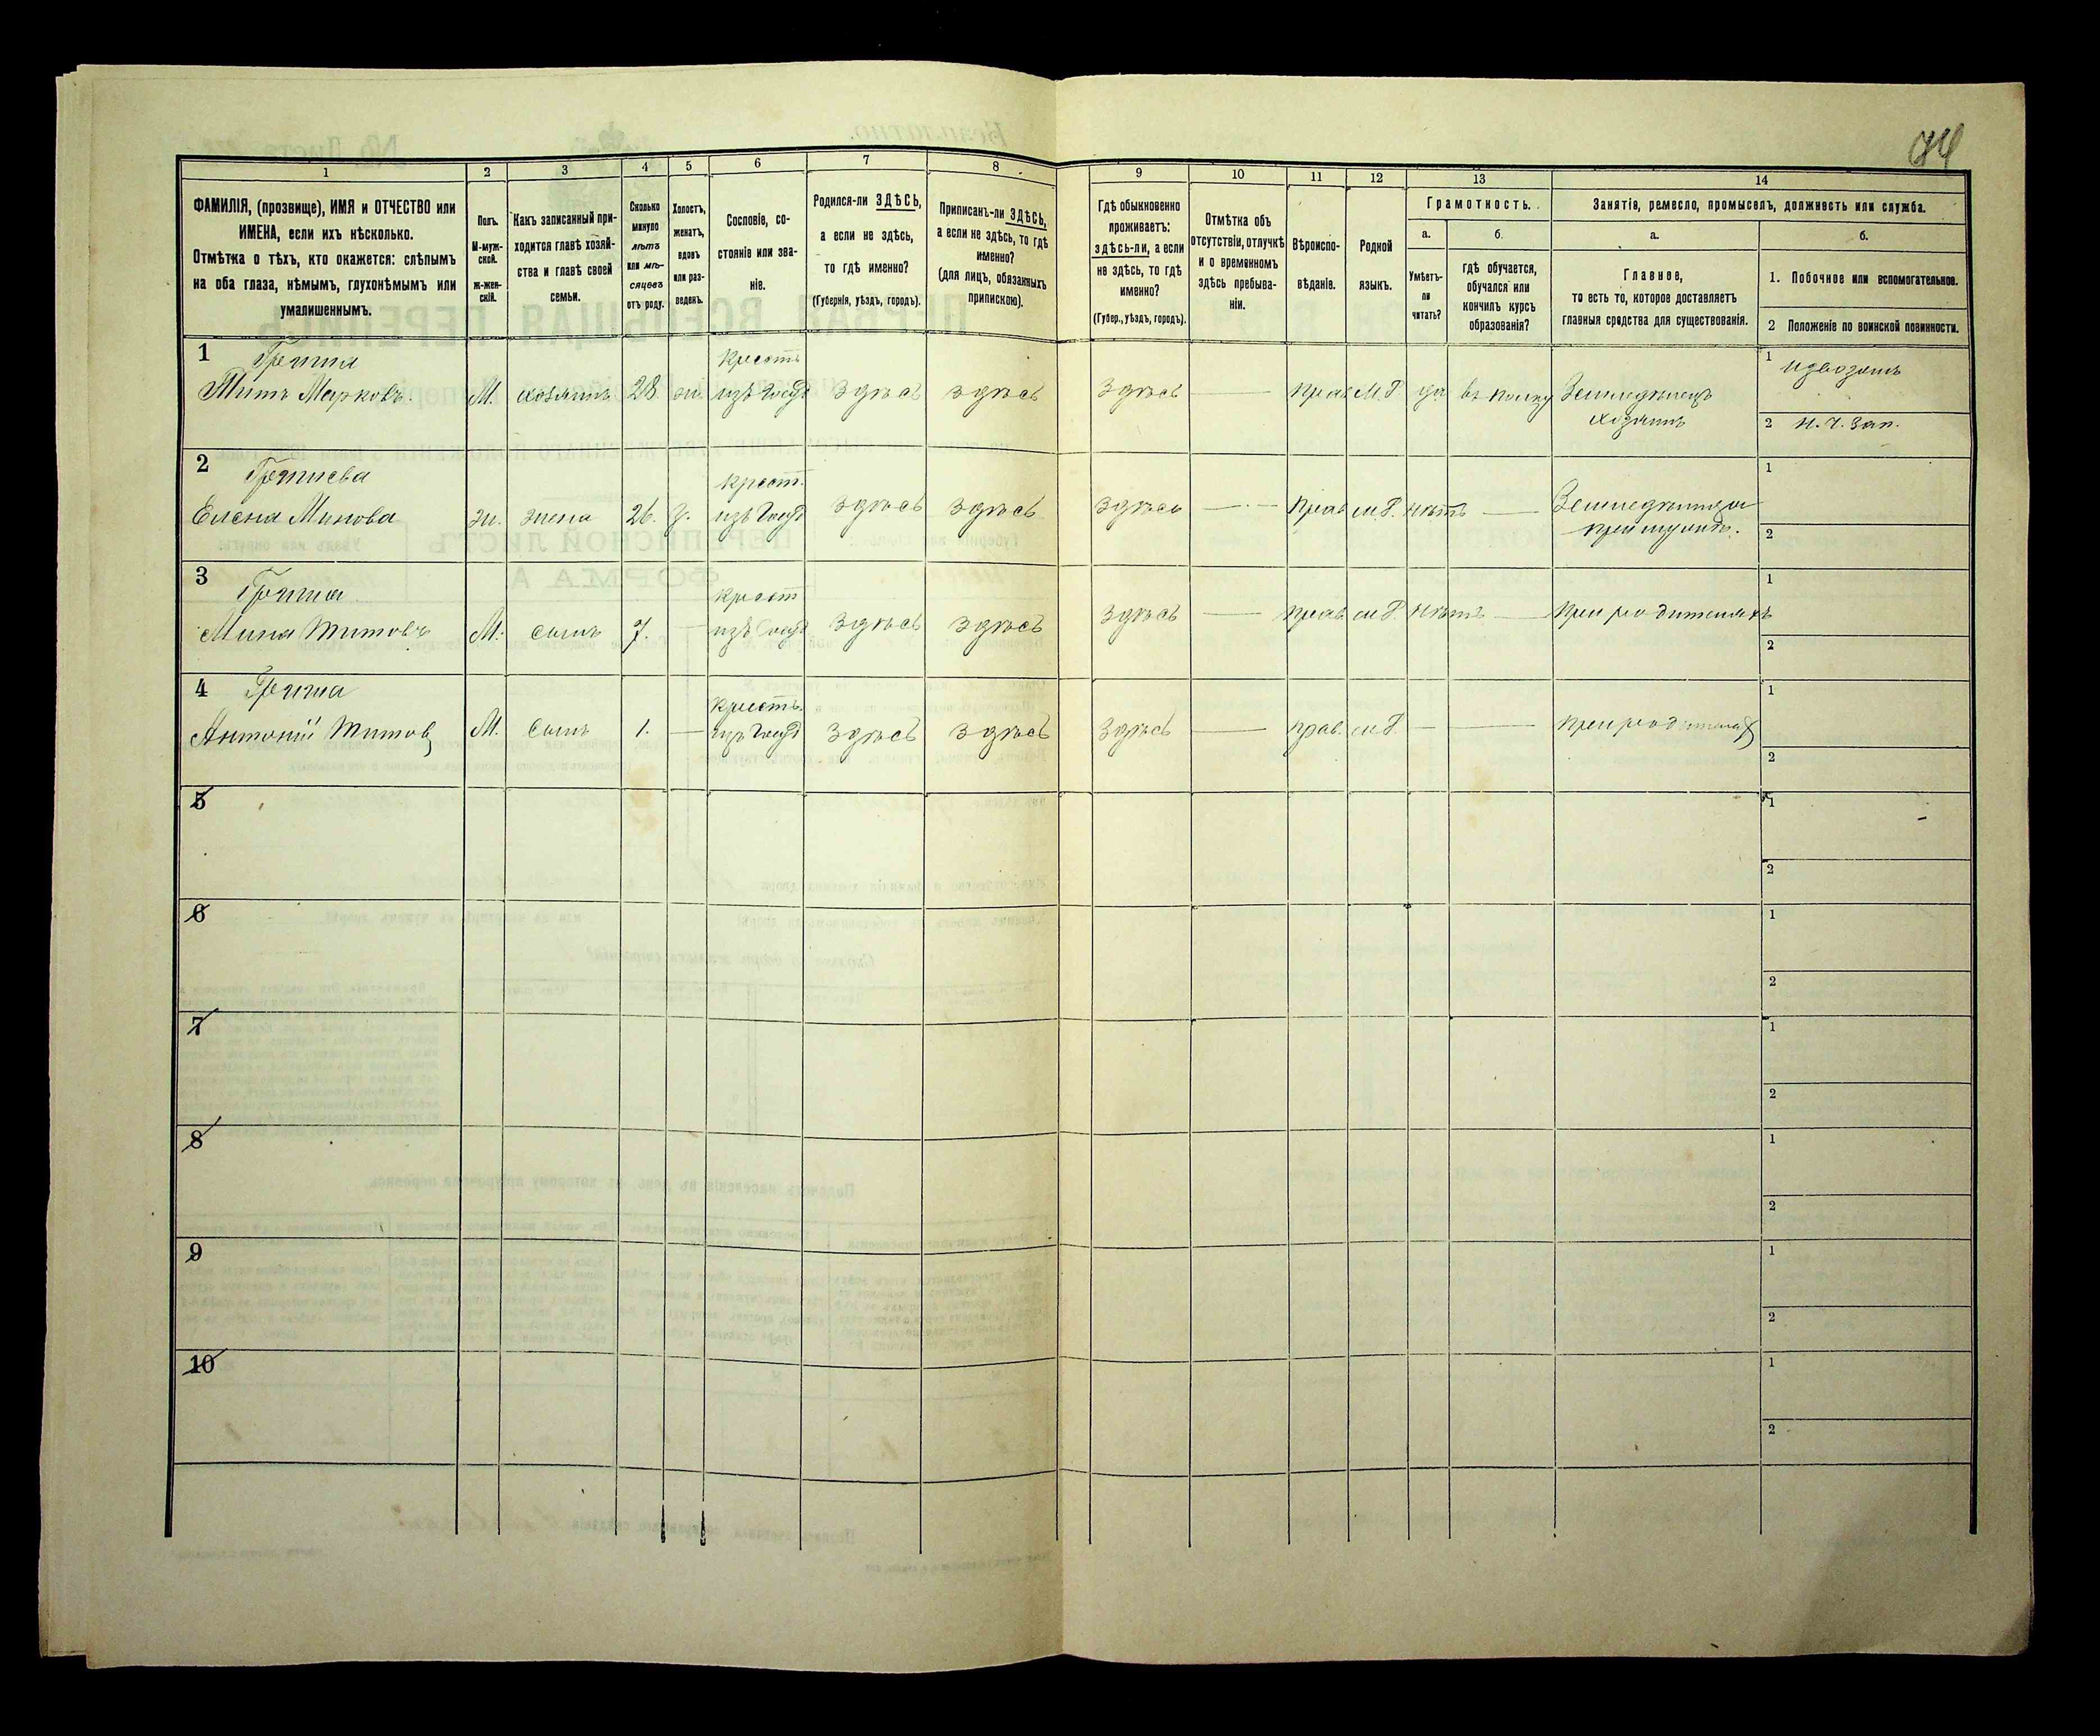 84
1
2
3
4
5
6
7
8
9
10
11
12
13
14
ФАМИЛІЯ, (прозвище), ИМЯ и ОТЧЕСТВО или
ИМЕНА, если ихъ нѣсколько.
Отмѣтка о тѣхъ, кто окажется: слѣпымъ
на оба глаза, нѣмымъ, глухонѣмымъ или
умалишеннымъ.
Полъ.
М-муж-
ской.
Ж-жен-
скій.
Какъ записанный при-
ходится главѣ хозяй-
ства и главѣ своей
семьи.
Сколько
минуло
лѣтъ
или мѣ-
сяцевъ
отъ роду.
Холостъ,
женатъ,
вдовъ
или раз-
веденъ.
Сословіе, со-
стояніе или зва-
ніе.
Родился-ли ЗДѢСЬ,
а если не здѣсь,
то гдѣ именно?
(Губернія, уѣздъ, городъ).
Приписанъ-ли ЗДѢСЬ,
а если не здѣсь, то гдѣ
именно?
(для лицъ, обязанныхъ
припискою).
Гдѣ обыкновенно
проживаетъ:
здѣсь-ли, а если
не здѣсь, то гдѣ
именно?
(Губер., уѣздъ, городъ).
Отмѣтка объ
отсутствіи, отлучкѣ
и о временномъ
здѣсь пребыва-
ніи.
Вѣроиспо-
вѣданіе.
Родной
языкъ.
Грамотность.
а.
Умѣетъ-
ли
читать?
б.
гдѣ обучается,
обучался или
кончилъ курсъ
образованія?
Занятіе, ремесло, промыселъ, должность или служба.
а.
Главное,
то есть то, которое доставляетъ
главныя средства для существованія.
б.
1. Побочное или вспомогательное.
2 Положеніе по воинской повинности.
1
Титъ Марковъ.
М. хозяинъ 28. ж.
Крест.
изъ Госуд
здѣсь здѣсь здѣсь — Прав М.Р. да въ полку
Земледѣлецъ
хозяинъ
1 извозомъ
2 Н. Ч. Зап.
2
Елена Минова
ж. жена 26. з.
Крест.
изъ Госуд
здѣсь здѣсь здѣсь — Прав м.Р. нѣтъ —
1
2
3
Мина Титовъ
М. сынъ 7. —
Крест
изъ Госуд
здѣсь здѣсь здѣсь — Прав м.Р. нѣтъ — при родителяхъ
1
2
4
Антоній Титовъ
М. сынъ 1. —
Крест.
изъ Госуд
здѣсь здѣсь здѣсь — Прав. м.Р. — — при родителях
1
2
5
1
2
6
1
2
7
1
2
8
1
2
9
1
2
10
1
2